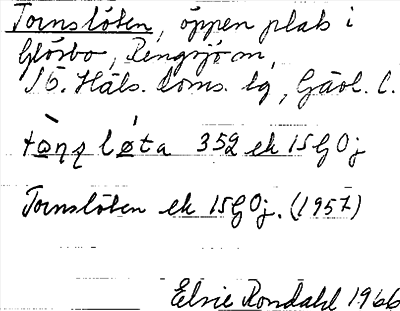 Tornslöten, öppen plats i
Glösbo, Rengsjö sn,
N. Häls. doms. lg, Gävl. l.
tὰɳʐ lǿta 352 ek 15G Oj
Tornslöten ek 15G Oj. (1957)
Elsie Rondahl 1966